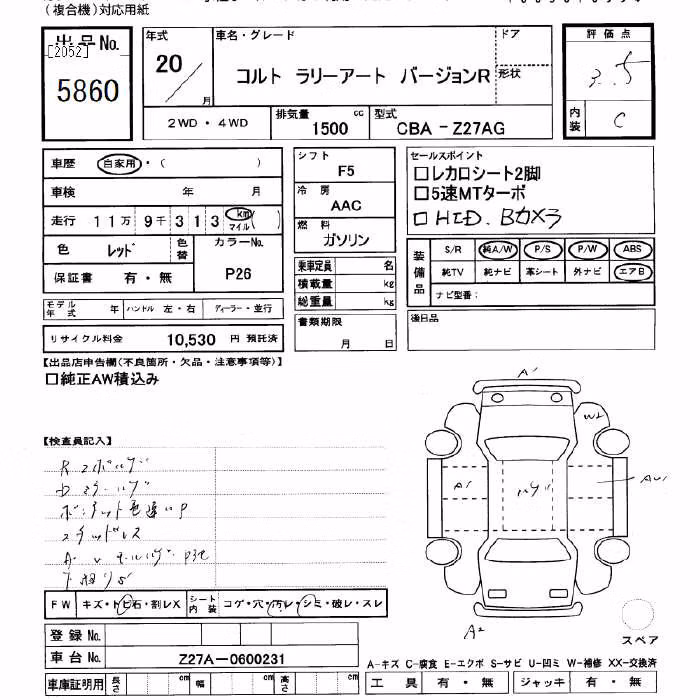 (複合機)対応用紙
出品No.
[2052]
5860
年式
20
月
車名・グレード
コルト ラリーアート バージョンR
ドア
形状
2WD・4WD
排気量
cc
1500
型式
CBA－Z27AG
評価点
3.5
内装
C
車歴
自家用・( )
車検
年 月
走行 11万9千313 km マイル( )
色 レッド
色替
カラーNo.
P26
保証書 有・無
モデル年式 年 ハンドル 左・右 ディーラー・並行
リサイクル料金 10,530 円 預託済
シフト
F5
冷房
AAC
燃料
ガソリン
乗車定員 名
積載量 kg
総重量 kg
書類期限
月 日
セールスポイント
□レカロシート2脚
□5速MTターボ
□HID.Bカメラ
装備品
S/R 純A/W P/S P/W ABS
純TV 純ナビ 革シート 外ナビ エアB
ナビ型番：
後日品
【出品店申告欄(不良箇所・欠品・注意事項等)】
□純正AW積込み
【検査員記入】
A1
W2
A1
AU1
A2
スペア
FW キズ・トビ石・割レX シート内装 コゲ・穴・汚レ・シミ・破レ・スレ
登録No.
車台No. Z27A－0600231
車庫証明用 長さ cm 幅 cm 高さ cm
A-キズ C-腐食 E-エクボ S-サビ U-凹ミ W-補修 XX-交換済
工具 有・無 ジャッキ 有・無